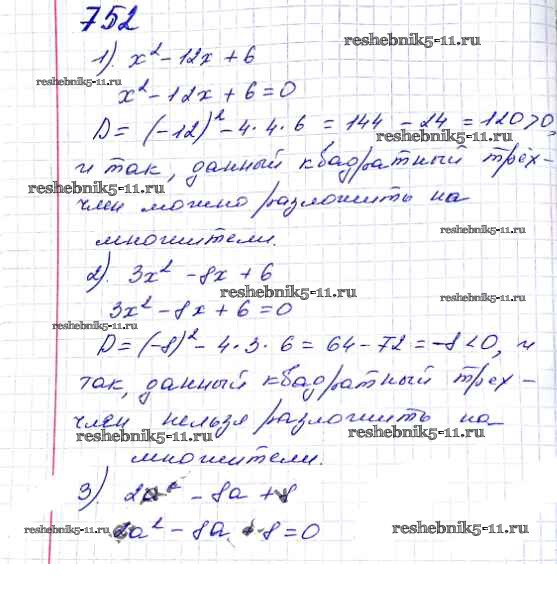 752
reshebnik5-11.ru
1). x² - 12x + 6
reshebnik5-11.ru
x² - 12x + 6 = 0
D = (-12)² - 4·4·6 = 144 - 24 = 120 > 0,
и так, данный квадратный трёх-
reshebnik5-11.ru
reshebnik5-11.ru
член можно разложить на
reshebnik5-11.ru
множители.
2). 3x² - 8x + 6
reshebnik5-11.ru
reshebnik5-11.ru
3x² - 8x + 6 = 0
reshebnik5-11.ru
D = (-8)² - 4·3·6 = 64 - 72 = -8 < 0, и
так, данный квадратный трех-
член нельзя разложить на
reshebnik5-11.ru
reshebnik5-11.ru
множители.
3). 2a² - 8a + 8
reshebnik5-11.ru
2a² - 8a + 8 = 0
reshebnik5-11.ru